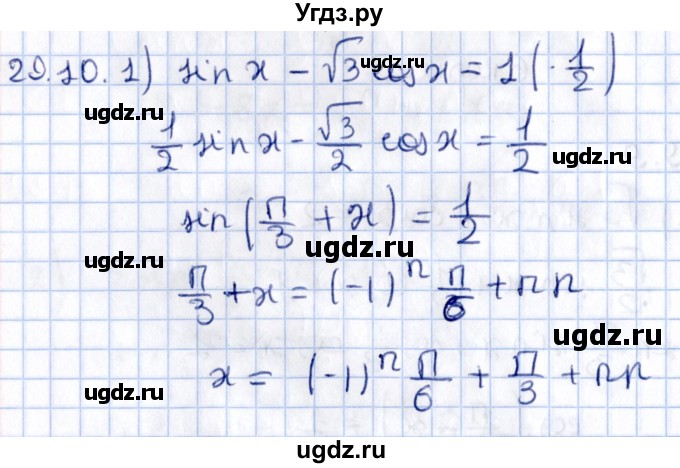 Угдз.ру
29.10. 1) sin x − √3 cos x = 1 (· 1/2)
ugdz.ru
ugdz.ru
1/2 sin x − √3/2 cos x = 1/2
ugdz.ru
ugdz.ru
sin(π/3 + x) = 1/2
ugdz.ru
ugdz.ru
π/3 + x = (−1)^n π/6 + πn
ugdz.ru
x = (−1)^n π/6 + π/3 + πn
ugdz.ru
ugdz.ru
ugdz.ru